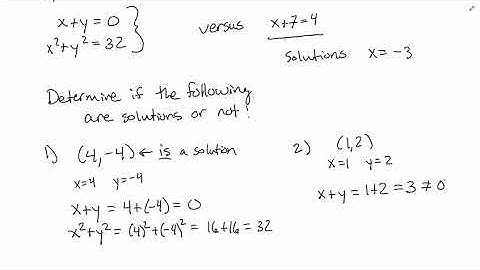 x+y=0
x²+y²=32
versus
x+7=4
solutions x=-3
Determine if the following
are solutions or not!
1) (4,-4) ← is a solution
x=4 y=-4
x+y = 4+(-4) = 0
x²+y² = (4)²+(-4)² = 16+16 = 32
2) (1,2)
x=1 y=2
x+y = 1+2 = 3 ≠ 0